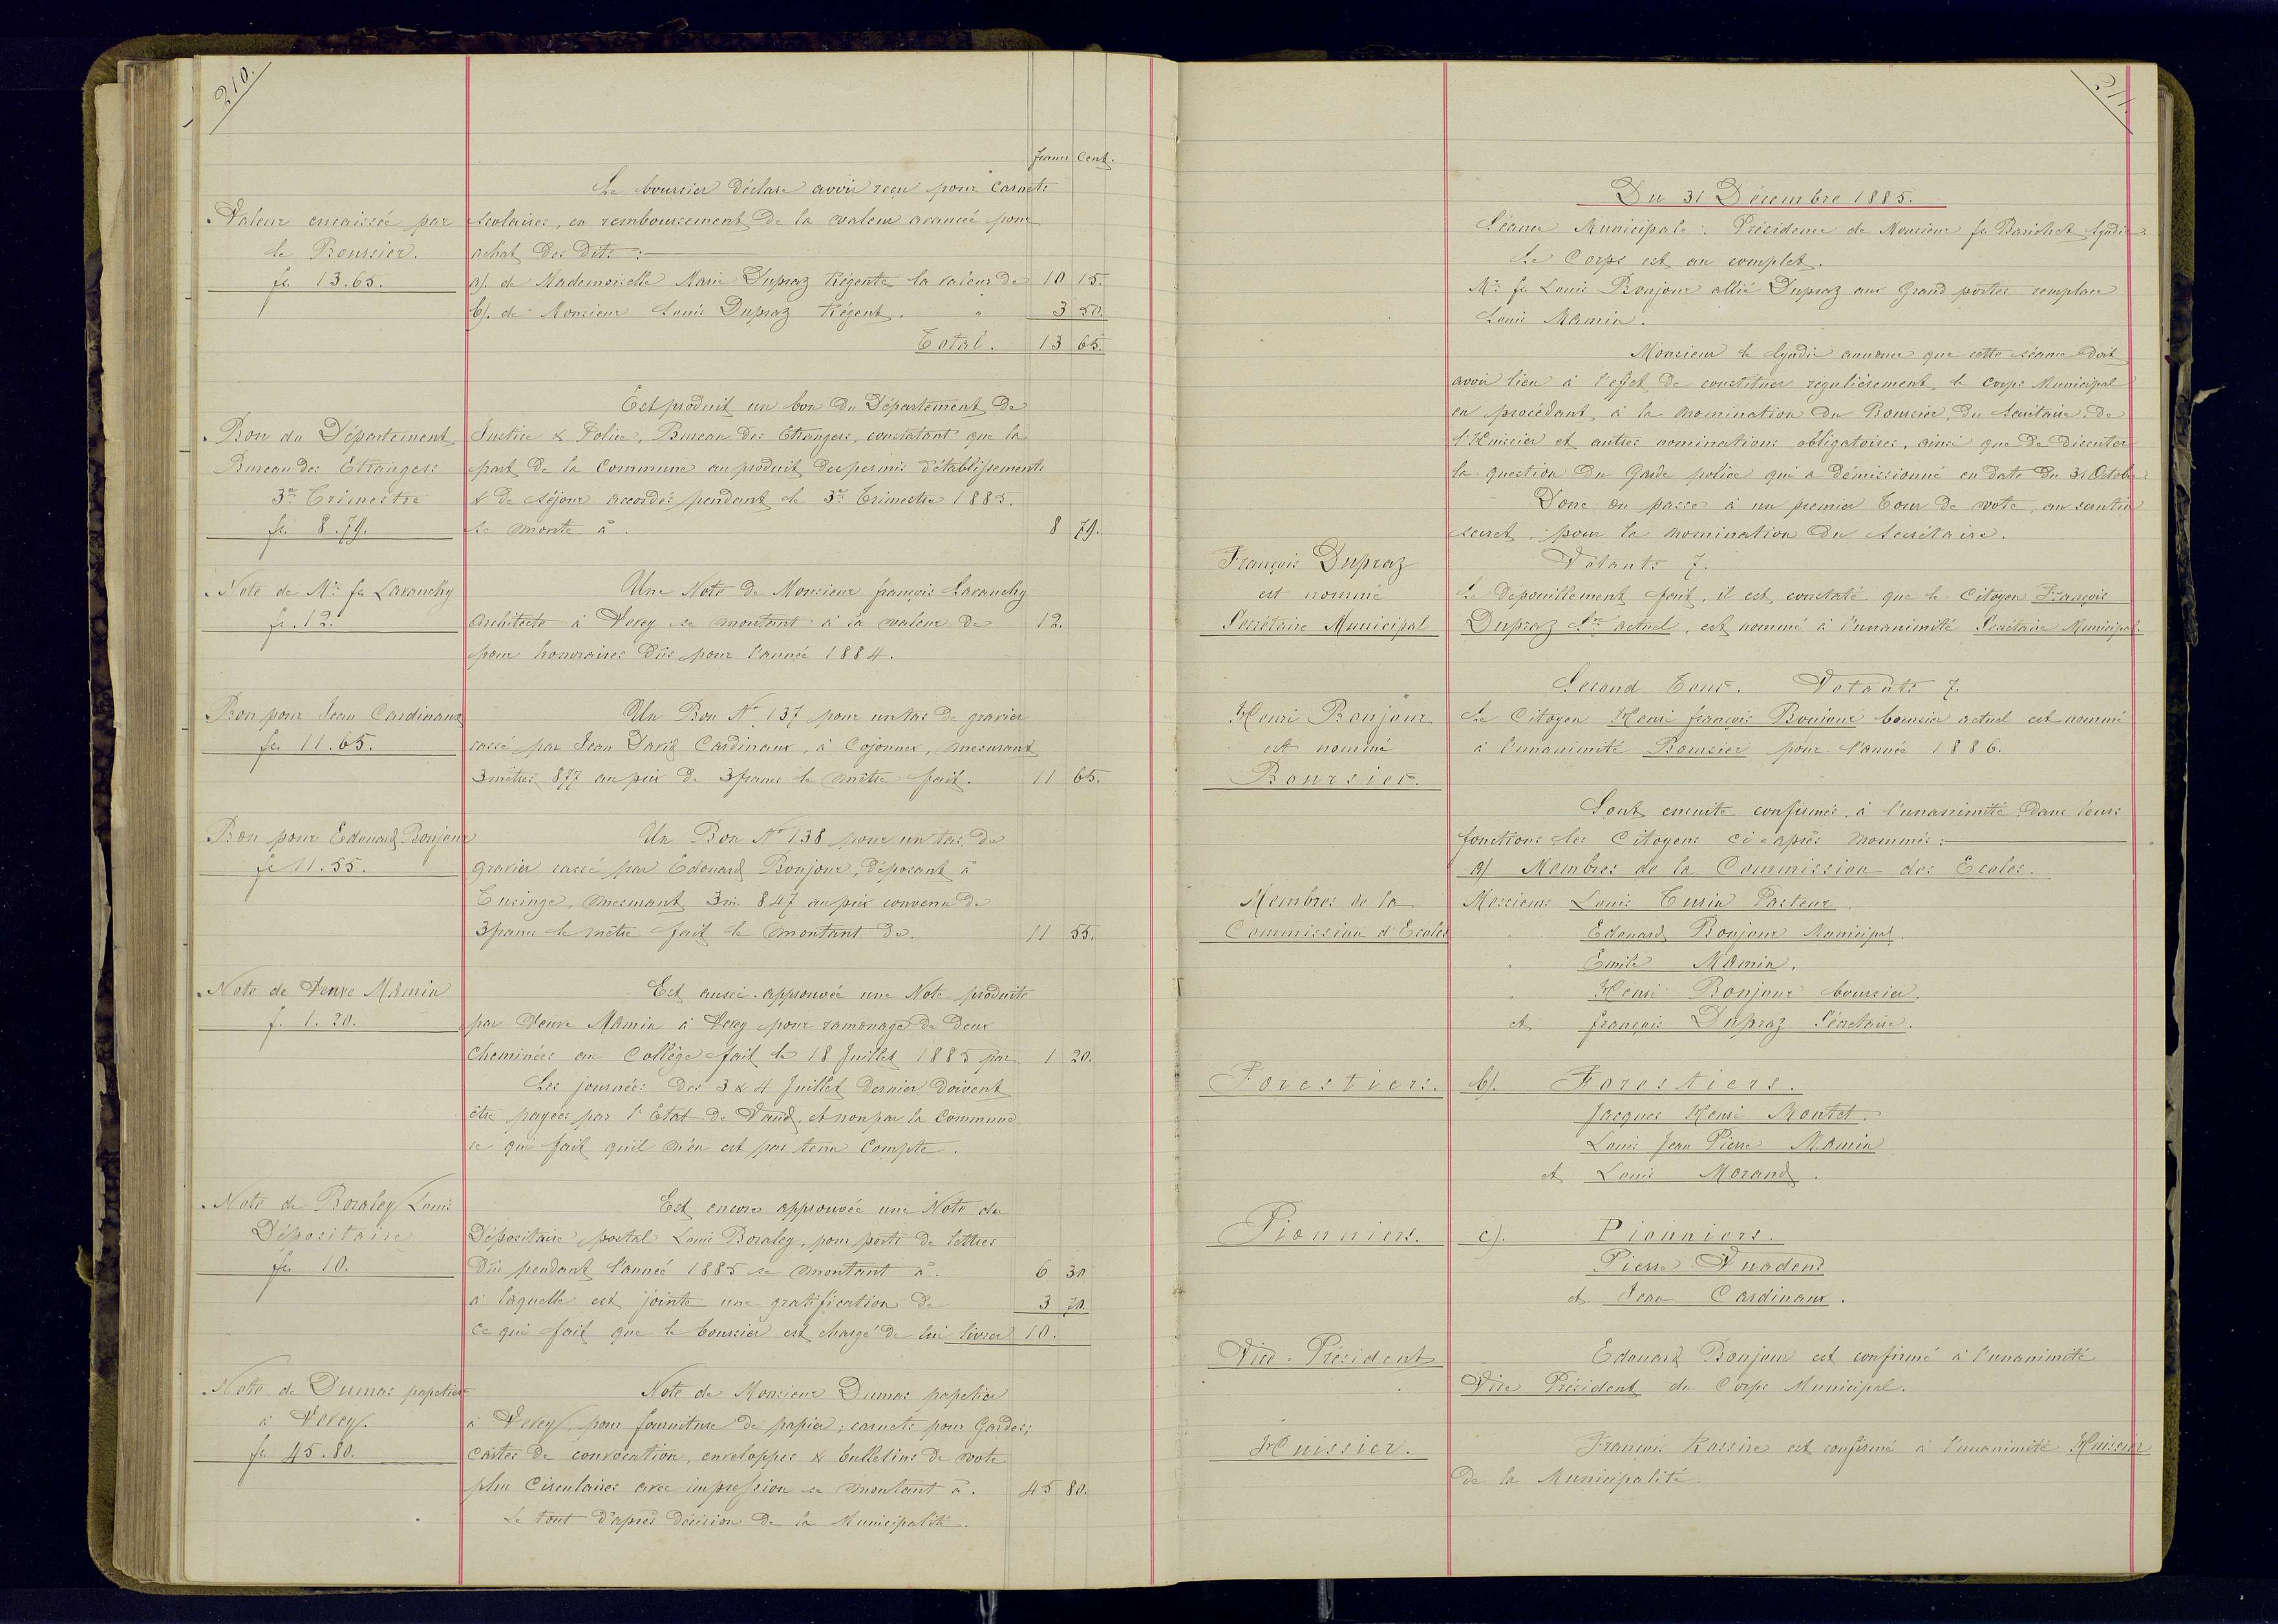 210.
Francs Cent.
Le boursier déclare avoir reçu pour Carnets
Valeur encaissée par
scolaires, en remboursement de la valeur avancée pour
le Boursier.
achat des dits :
fr. 13.65.
a). de Mademoiselle Marie Dupraz Régente la valeur de 10 15.
b). de Monsieur Louis Dupraz Régent. " 3 50.
Total. 13 65.
Est produit un bon du Département de
Bon du Département
Justice & Police, Bureau des Etrangers, constatant que la
Bureau des Etrangers
part de la Commune au produit des permis d'établissements
3me Trimestre
& de séjour accordés pendant le 3me Trimestre 1885.
fr. 8.79.
se monte à. 8 79.
Note de Mr fs Lavanchy
Une Note de Monsieur françois Lavanchy
fr. 12.
architecte à Vevey se montant à la valeur de 12.
pour honoraires dûs pour l'année 1884.
Bon pour Jean Cardinaux
Un Bon No 137 pour un tas de gravier
fr. 11.65.
cassé par Jean David Cardinaux, à Cojonnex, mesurant
3 mètres 877 au prix de 3 francs le mètre fait. 11 65.
Bon pour Edouard Bonjour
Un Bon No 138 pour un tas de
fr 11.55.
gravier cassé par Edouard Bonjour, déposant à
Tusinge, mesurant 3m 847 au prix convenu de
3 francs le mètre fait le montant de. 11 55.
Note de Veuve Mamin
Est aussi approuvée une Note produite
f. 1.20.
par Veuve Mamin à Vevey pour ramonage de deux
Cheminées au Collège fait le 18 Juillet 1885 par 1 20.
Les journées des 3 & 4 Juillet dernier doivent
être payées par l'Etat de Vaud, et non par la Commune
ce qui fait qu'il n'en est pas tenu Compte.
Note de Boraley Louis
Est encore approuvée une Note du
Dépositaire
Dépositaire postal Louis Boraley, pour ports de lettres
fr. 10.
dûs pendant l'année 1885 se montant à. 6 30
à laquelle est jointe une gratification de 3 70.
Ce qui fait que le boursier est chargé de lui livrer 10.
Note de Dumas papetier
Note de Monsieur Dumas papetier
à Vevey.
à Vevey, pour fourniture de papier; carnets pour Gardes;
fr. 45.80.
Cartes de convocation, enveloppes & bulletins de vote
plus Circulaires avec impression se montant à. 45 80.
Le tout d'après décision de la Municipalité.
211.
Du 31 Décembre 1885.
Séance Municipale. Présidence de Monsieur fs Barichet Syndic.
Le Corps est au complet.
Mr. fs Louis Bonjour allié Dupraz aux Grand portes remplace
Louis Mamin.
Monsieur le Syndic annonce que cette séance doit
avoir lieu à l'effet de constituer regulièrement le Corps Municipal
en procédant, à la nomination du Boursier, du Secrétaire, de
l'Huissier et autres nominations obligatoires, ainsi que de discuter
la question du Garde police qui a démissionné en date du 31 Octobre.
Donc on passe à un premier tour de vote, au scrutin
secret, pour la nomination du Secrétaire.
François Dupraz
Votants 7.
est nommé
Le dépouillement fait, il est constaté que le Citoyen François
Secrétaire Municipal
Dupraz Sre actuel, est nommé à l'unanimité Secrétaire Municipal.
Second Tour. Votants 7.
Henri Bonjour
Le Citoyen Henri françois Bonjour boursier actuel est nommé
est nommé
à l'unanimité Boursier pour l'année 1886.
Boursier.
Sont ensuite confirmés à l'unanimité dans leurs
fonctions les Citoyens ci-après nommés :
a) Membres de la Commission des Ecoles.
Membres de la
Messieurs Louis Turin Pasteur.
Commission d'Ecoles
" Edouard Bonjour Municipal.
" Emile Mamin.
" Henri Bonjour boursier.
et françois Dupraz Secrétaire.
Forestiers.
b). Forestiers.
Jacques Henri Montet.
Louis Jean Pierre Mamin
et Louis Morand.
Pionniers.
c). Pionniers.
Pierre Vuadens
et Jean Cardinaux.
Vice-Président
Edouard Bonjour est confirmé à l'unanimité
Vice Président du Corps Municipal.
Huissier.
François Rossire est confirmé à l'unanimité Huissier
de la Municipalité.